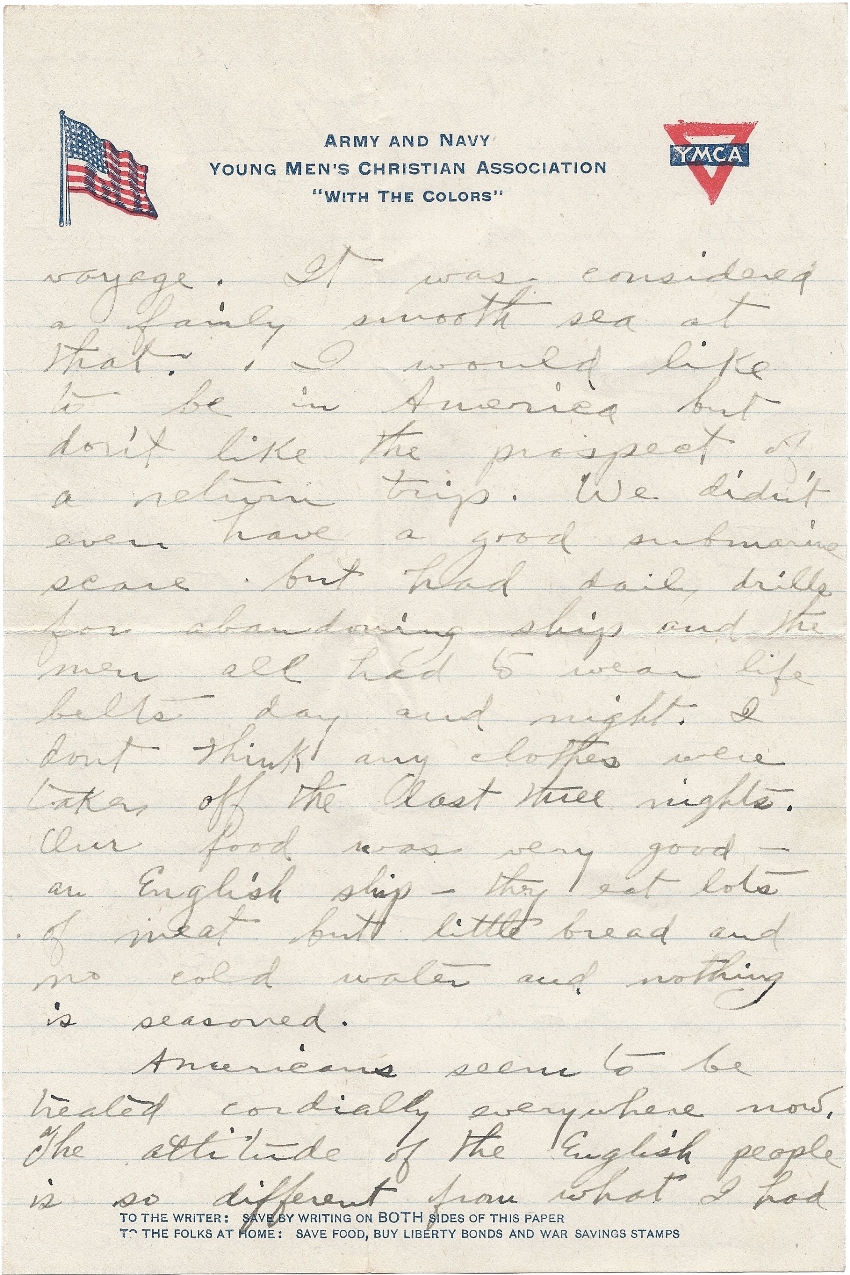 ARMY AND NAVY
YOUNG MEN'S CHRISTIAN ASSOCIATION
"WITH THE COLORS"
YMCA
voyage. It was considered
a fairly smooth sea at
that. I would like
to be in America but
don't like the prospect of
a return trip. We didn't
even have a good submarine
scare but had daily drills
for abandoning ship and the
men all had to wear life
belts day and night. I
dont think any clothes were
taken off the last three nights.
Our food was very good –
an English ship – they eat lots
of meat but little bread and
no cold water and nothing
is seasoned.
Americans seem to be
treated cordially everywhere now.
The attitude of the English people
is so different from what I had
TO THE WRITER: SAVE BY WRITING ON BOTH SIDES OF THIS PAPER
TO THE FOLKS AT HOME: SAVE FOOD, BUY LIBERTY BONDS AND WAR SAVINGS STAMPS